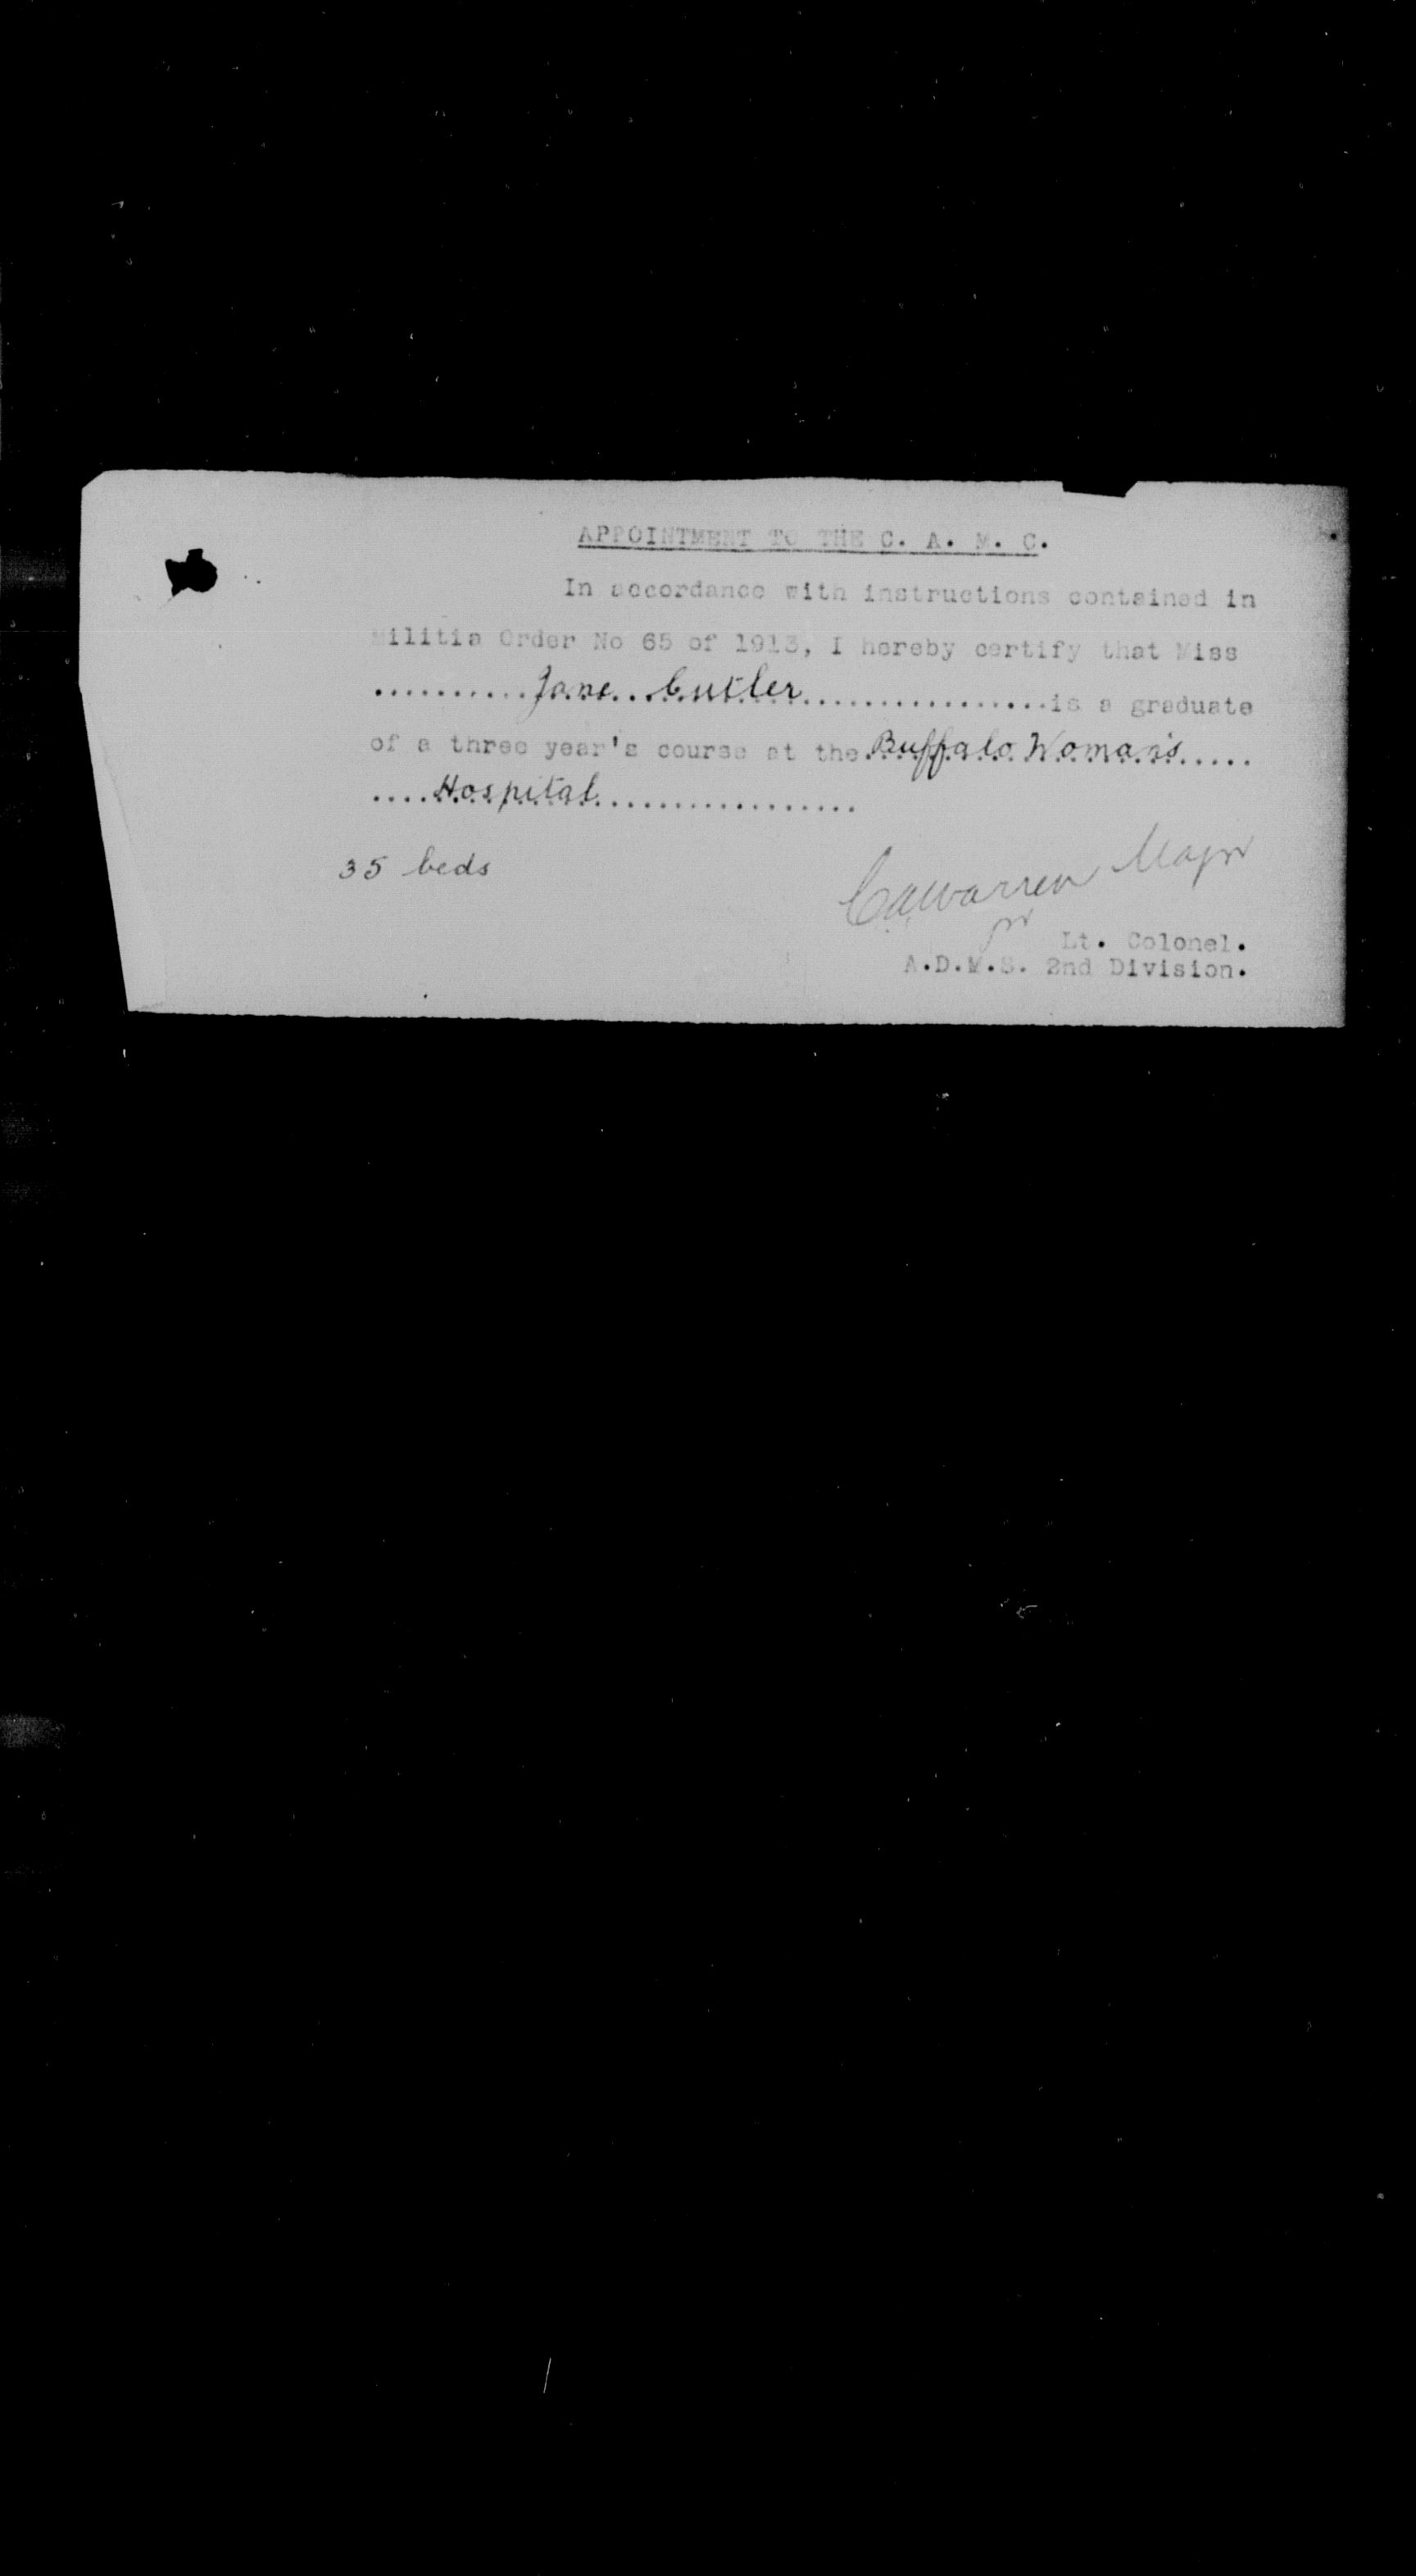 APPOINTMENT TO THE C. A. M. C.
In accordance with instructions contained in
Militia Order No 65 of 1913, I hereby certify that Miss
..........Jane Cutler..................is a graduate
of a three year's course at the Buffalo Woman's.....
....Hospital..................
35 beds
C.A. Warren Major
for
Lt. Colonel.
A.D.M.S. 2nd Division.